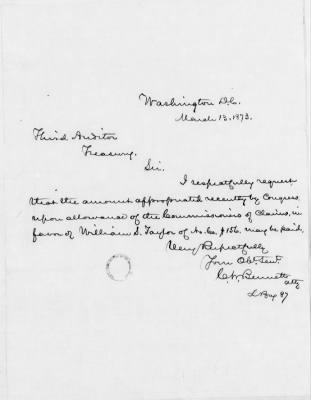 Washington D.C.
March 13, 1873.
Third Auditor
Treasury.
Sir.
I respectfully request
that the amount appropriated recently by Congress,
upon allowance of the Commissioners of Claims, in
favor of William S. Taylor of $156. may be paid,
Very Respectfully
Your Obt. Servt.
C. W. Bennett
atty
Box 97